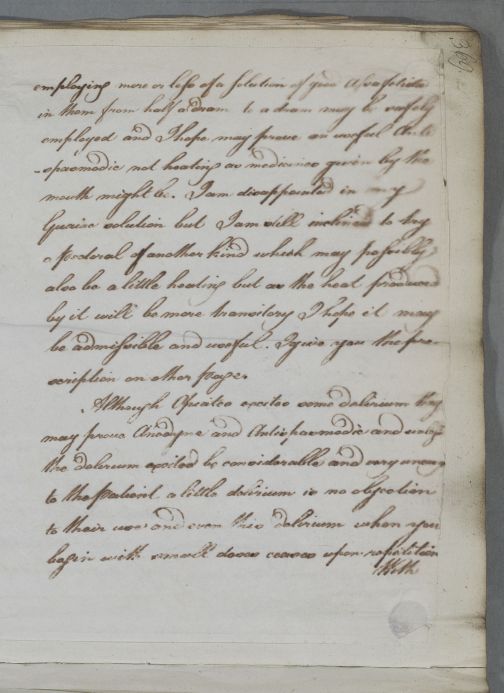 369
employing more or less of a solution of good Assafoetida
in them from half a dram to a dram may be safely
employed and I hope may prove an useful Anti
-spasmodic not heating as medicines given by the
mouth might be. I am disappointed in my
Guaiac solution but I am still inclined to try
a pectoral of another kind which may possibly
also be a little heating but as the heat produced
by it will be more transitory I hope it may
be admissible and useful. I give you the pre-
scription on other page.
Although Opiates excite some delirium they
may prove Anodyne and Antispasmodic and unless
the delirium excited be considerable and very uneasy
to the Patient a little delirium is no objection
to their use and even this delirium when you
begin with small doses ceases upon repetition
With